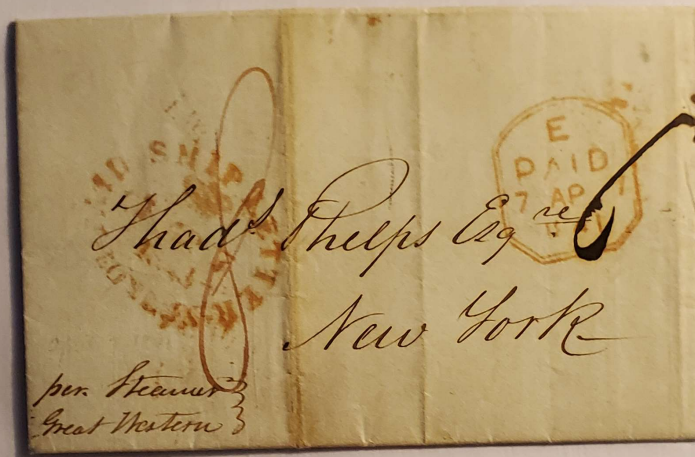 PAID SHIP LETTER
E
PAID
7 AP
Thad^s Phelps Esq^re
6
New York
per Steamer
Great Western